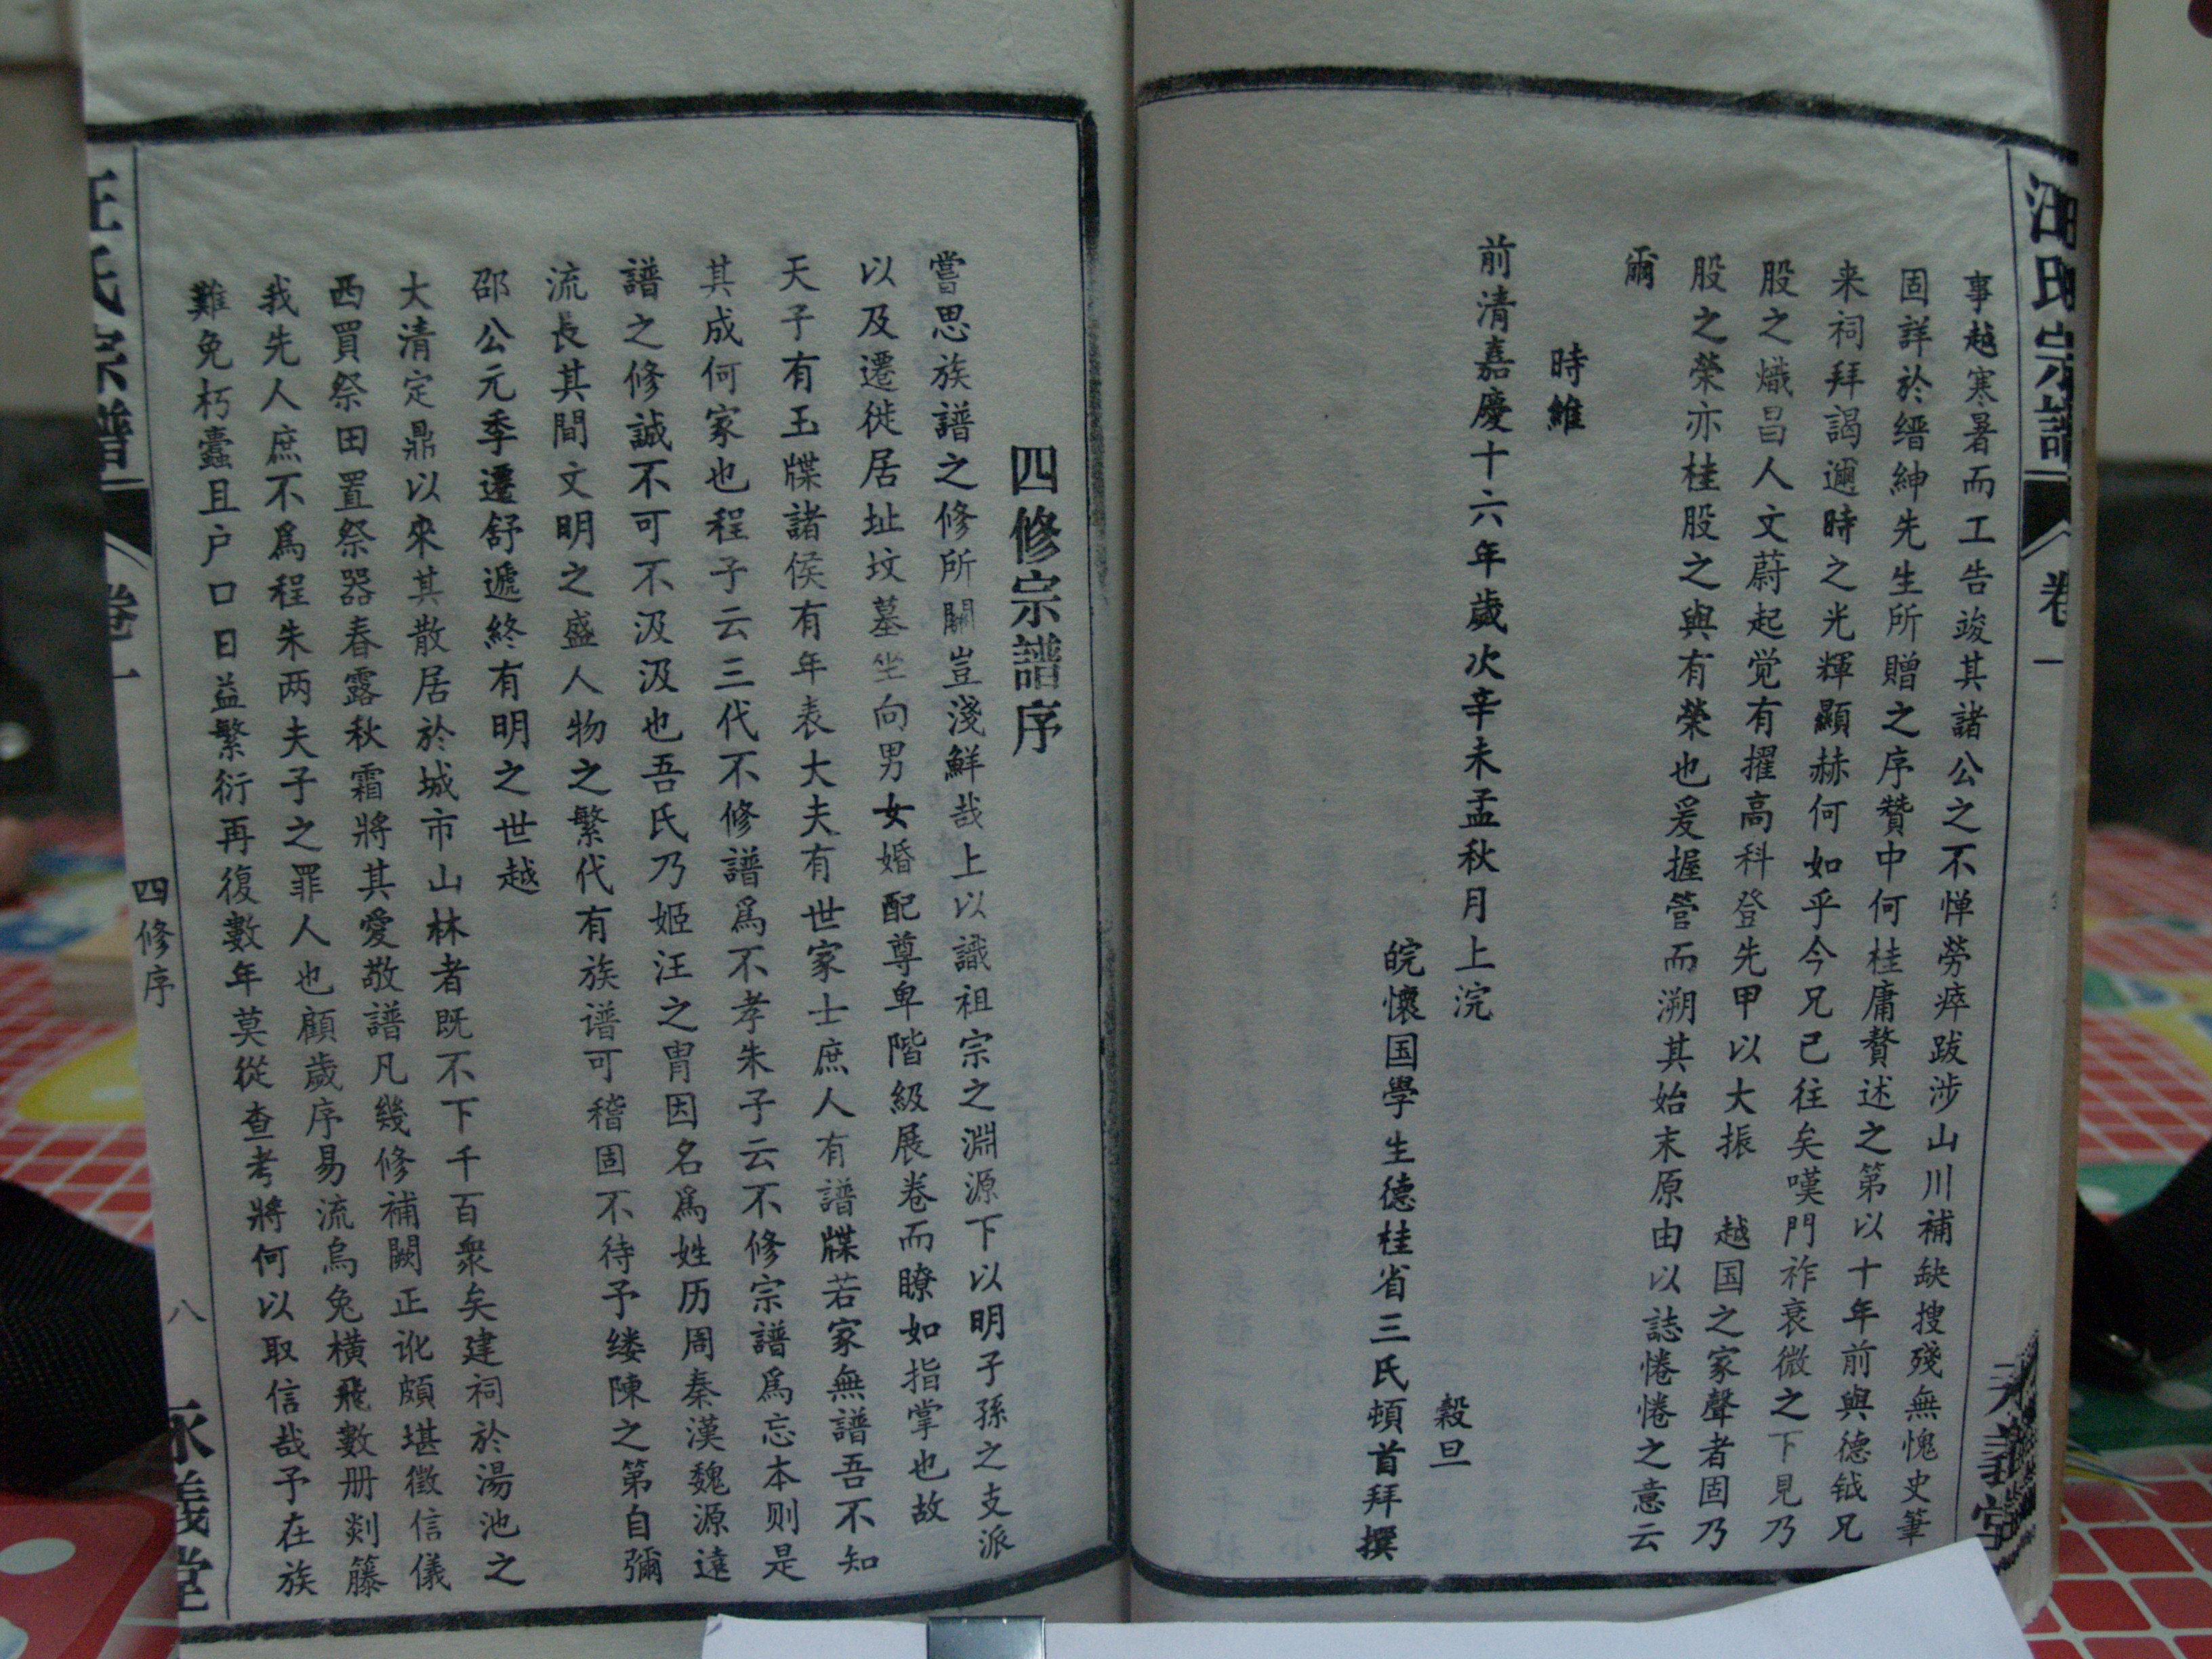 汪氏宗譜
卷一
事越寒暑而工告竣其諸公之不惮勞瘁跋涉山川補缺搜殘無愧史筆
固詳於缙紳先生所贈之序贊中何桂庸贅述之第以十年前與德钺兄
来祠拜謁邇時之光輝顯赫何如乎今兄已往矣嘆門祚衰微之下見乃
股之熾昌人文蔚起觉有擢高科登先甲以大振 越国之家聲者固乃
股之榮亦桂股之與有榮也爰握管而溯其始末原由以誌惓惓之意云
爾
時維
前清嘉慶十六年歲次辛未孟秋月上浣
穀旦
皖懷国學生德桂省三氏頓首拜撰
四修宗譜序
嘗思族譜之修所關豈淺鮮哉上以識祖宗之淵源下以明子孫之支派
以及遷徙居址坟墓坐向男女婚配尊卑階級展卷而瞭如指掌也故
天子有玉牒諸侯有年表大夫有世家士庶人有譜牒若家無譜吾不知
其成何家也程子云三代不修譜爲不孝朱子云不修宗譜爲忘本则是
譜之修誠不可不汲汲也吾氏乃姬汪之胄因名爲姓历周秦漢魏源遠
流長其間文明之盛人物之繁代有族谱可稽固不待予缕陳之第自彌
邵公元季遷舒遞終有明之世越
大清定鼎以來其散居於城市山林者既不下千百衆矣建祠於湯池之
西買祭田置祭器春露秋霜將其愛敬譜凡幾修補闕正讹頗堪徵信儀
我先人庶不爲程朱两夫子之罪人也顧歲序易流烏兔橫飛數册剡籐
難免朽蠹且户口日益繁衍再復數年莫從查考將何以取信哉予在族
汪氏宗譜
卷一
四修序
八
永義堂